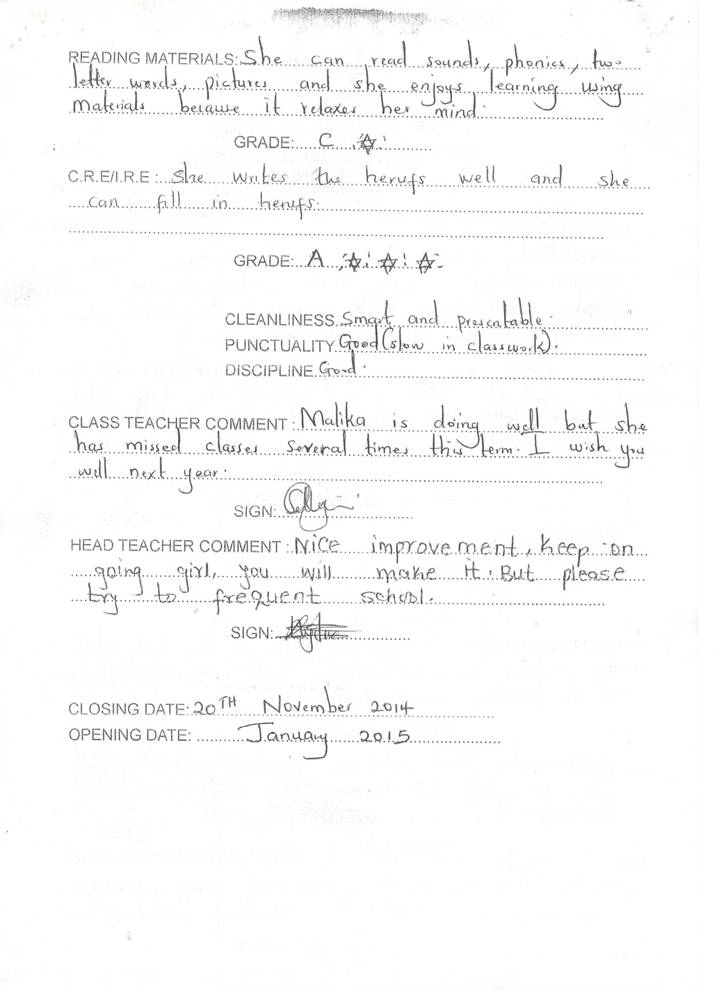 READING MATERIALS: She can read sounds, phonics, two
letter words, pictures and she enjoys learning using
materials because it relaxes her mind.
GRADE: C
C.R.E/I.R.E : She writes the herufs well and she
can fill in herufs.
GRADE: A
CLEANLINESS Smart and presentable.
PUNCTUALITY Good (slow in classwork).
DISCIPLINE Good.
CLASS TEACHER COMMENT : Malika is doing well but she
has missed classes several times this term. I wish you
well next year.
SIGN:
HEAD TEACHER COMMENT : Nice improvement, keep on
going girl, you will make it. But please
try to frequent school.
SIGN:
CLOSING DATE: 20TH November 2014
OPENING DATE: January 2015